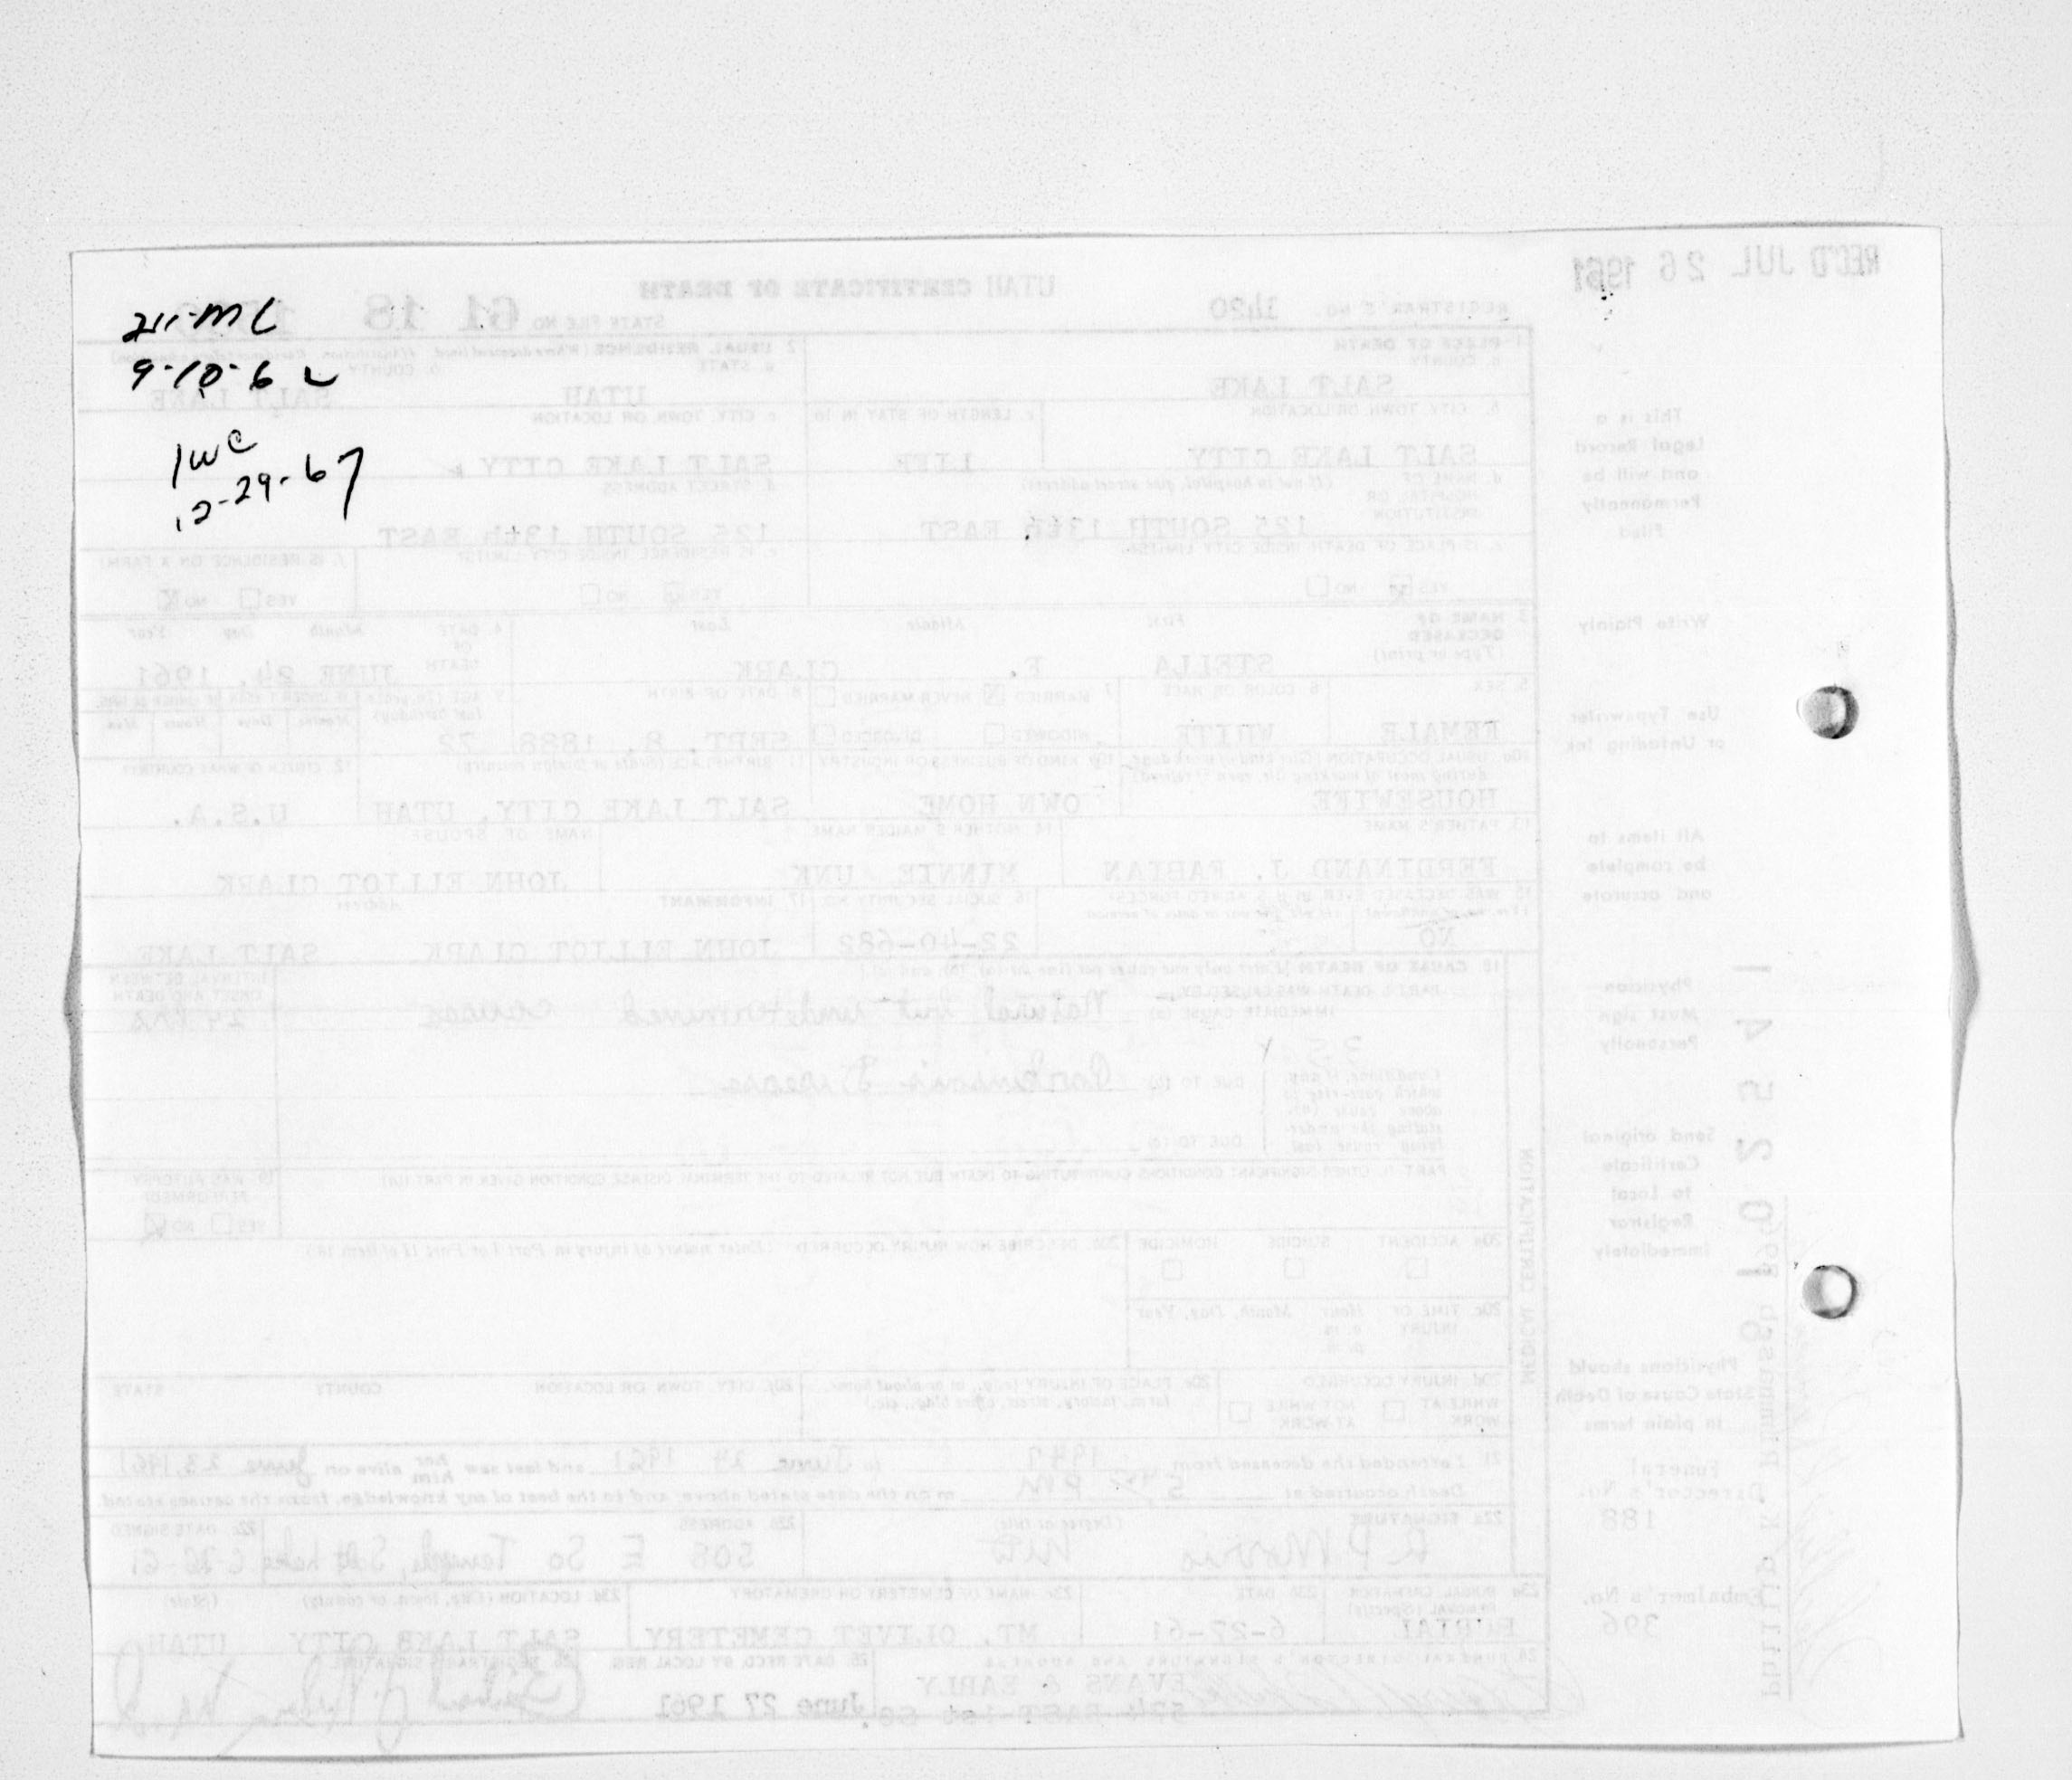 2rc-ML
9-10-62
1wc
12-29-67
REC'D JUL 26 1961
UTAH CERTIFICATE OF DEATH
REGISTRAR'S NO. 1420
STATE FILE NO. 61 18
1. PLACE OF DEATH
a. COUNTY
SALT LAKE
2. USUAL RESIDENCE (Where deceased lived. If institution: Residence before admission)
a. STATE UTAH
b. COUNTY SALT LAKE
b. CITY, TOWN OR LOCATION
SALT LAKE CITY
c. LENGTH OF STAY IN 1b
LIFE
c. CITY, TOWN OR LOCATION
SALT LAKE CITY
d. NAME OF HOSPITAL OR INSTITUTION (If not in hospital, give street address)
125 SOUTH 13th EAST
d. STREET ADDRESS
125 SOUTH 13th EAST
e. IS PLACE OF DEATH INSIDE CITY LIMITS?
YES NO
e. IS RESIDENCE INSIDE CITY LIMITS?
YES NO
f. IS RESIDENCE ON A FARM?
YES NO X
3. NAME OF DECEASED (Type or print)
First Middle Last
STELLA F. CLARK
4. DATE OF DEATH Month Day Year
JUNE 24, 1961
5. SEX
FEMALE
6. COLOR OR RACE
WHITE
7. MARRIED X NEVER MARRIED
WIDOWED DIVORCED
8. DATE OF BIRTH
SEPT. 8, 1888
9. AGE (In years last birthday)
72
10a. USUAL OCCUPATION (Give kind of work done during most of working life, even if retired)
HOUSEWIFE
10b. KIND OF BUSINESS OR INDUSTRY
OWN HOME
11. BIRTHPLACE (State or foreign country)
SALT LAKE CITY, UTAH
12. CITIZEN OF WHAT COUNTRY?
U.S.A.
13. FATHER'S NAME
FERDINAND J. FABIAN
14. MOTHER'S MAIDEN NAME
MINNIE UNK
NAME OF SPOUSE
JOHN ELLIOT CLARK
15. WAS DECEASED EVER IN U.S. ARMED FORCES?
NO
16. SOCIAL SECURITY NO.
22-40-682
17. INFORMANT Address
JOHN ELLIOT CLARK SALT LAKE
18. CAUSE OF DEATH [Enter only one cause per line for (a), (b), and (c).]
INTERVAL BETWEEN ONSET AND DEATH
PART I. DEATH WAS CAUSED BY:
IMMEDIATE CAUSE (a) Natural but undetermined causes
24 hrs
DUE TO (b) Parkinson's Disease
Conditions, if any, which gave rise to above cause (a), stating the underlying cause last
DUE TO (c)
PART II. OTHER SIGNIFICANT CONDITIONS CONTRIBUTING TO DEATH BUT NOT RELATED TO THE TERMINAL DISEASE CONDITION GIVEN IN PART I(a)
19. WAS AUTOPSY PERFORMED?
YES NO X
20a. ACCIDENT SUICIDE HOMICIDE
20b. DESCRIBE HOW INJURY OCCURRED. (Enter nature of injury in Part I or Part II of item 18.)
20c. TIME OF INJURY Hour Month, Day, Year
a. m.
p. m.
20d. INJURY OCCURRED
WHILE AT WORK NOT WHILE AT WORK
20e. PLACE OF INJURY (e.g., in or about home, farm, factory, street, office bldg., etc.)
20f. CITY, TOWN OR LOCATION COUNTY STATE
21. I attended the deceased from 1947 to June 24 1961 and last saw her him alive on June 23, 1961
Death occurred at 5:45 P.M. m on the date stated above; and to the best of my knowledge, from the causes stated.
22a. SIGNATURE (Degree or title)
R P Morris MD
22b. ADDRESS
508 E So Temple, Salt Lake
22c. DATE SIGNED
6-26-61
23a. BURIAL, CREMATION, REMOVAL (Specify)
BURIAL
23b. DATE
6-27-61
23c. NAME OF CEMETERY OR CREMATORY
MT. OLIVET CEMETERY
23d. LOCATION (City, town, or county) (State)
SALT LAKE CITY UTAH
24. FUNERAL DIRECTOR'S SIGNATURE AND ADDRESS
EVANS & EARLY
574 EAST 1st So.
25. DATE REC'D BY LOCAL REG.
June 27 1961
26. REGISTRAR'S SIGNATURE
MEDICAL CERTIFICATION
This is a
Legal Record
and will be
Permanently
Filed
Write Plainly
Use Typewriter
or Unfading Ink
All items to
be complete
and accurate
Physician
Must sign
Personally
Send original
Certificate
to Local
Registrar
immediately
Physicians should
State Cause of Death
in plain terms
Funeral
Director's No.
188
Embalmer's No.
396